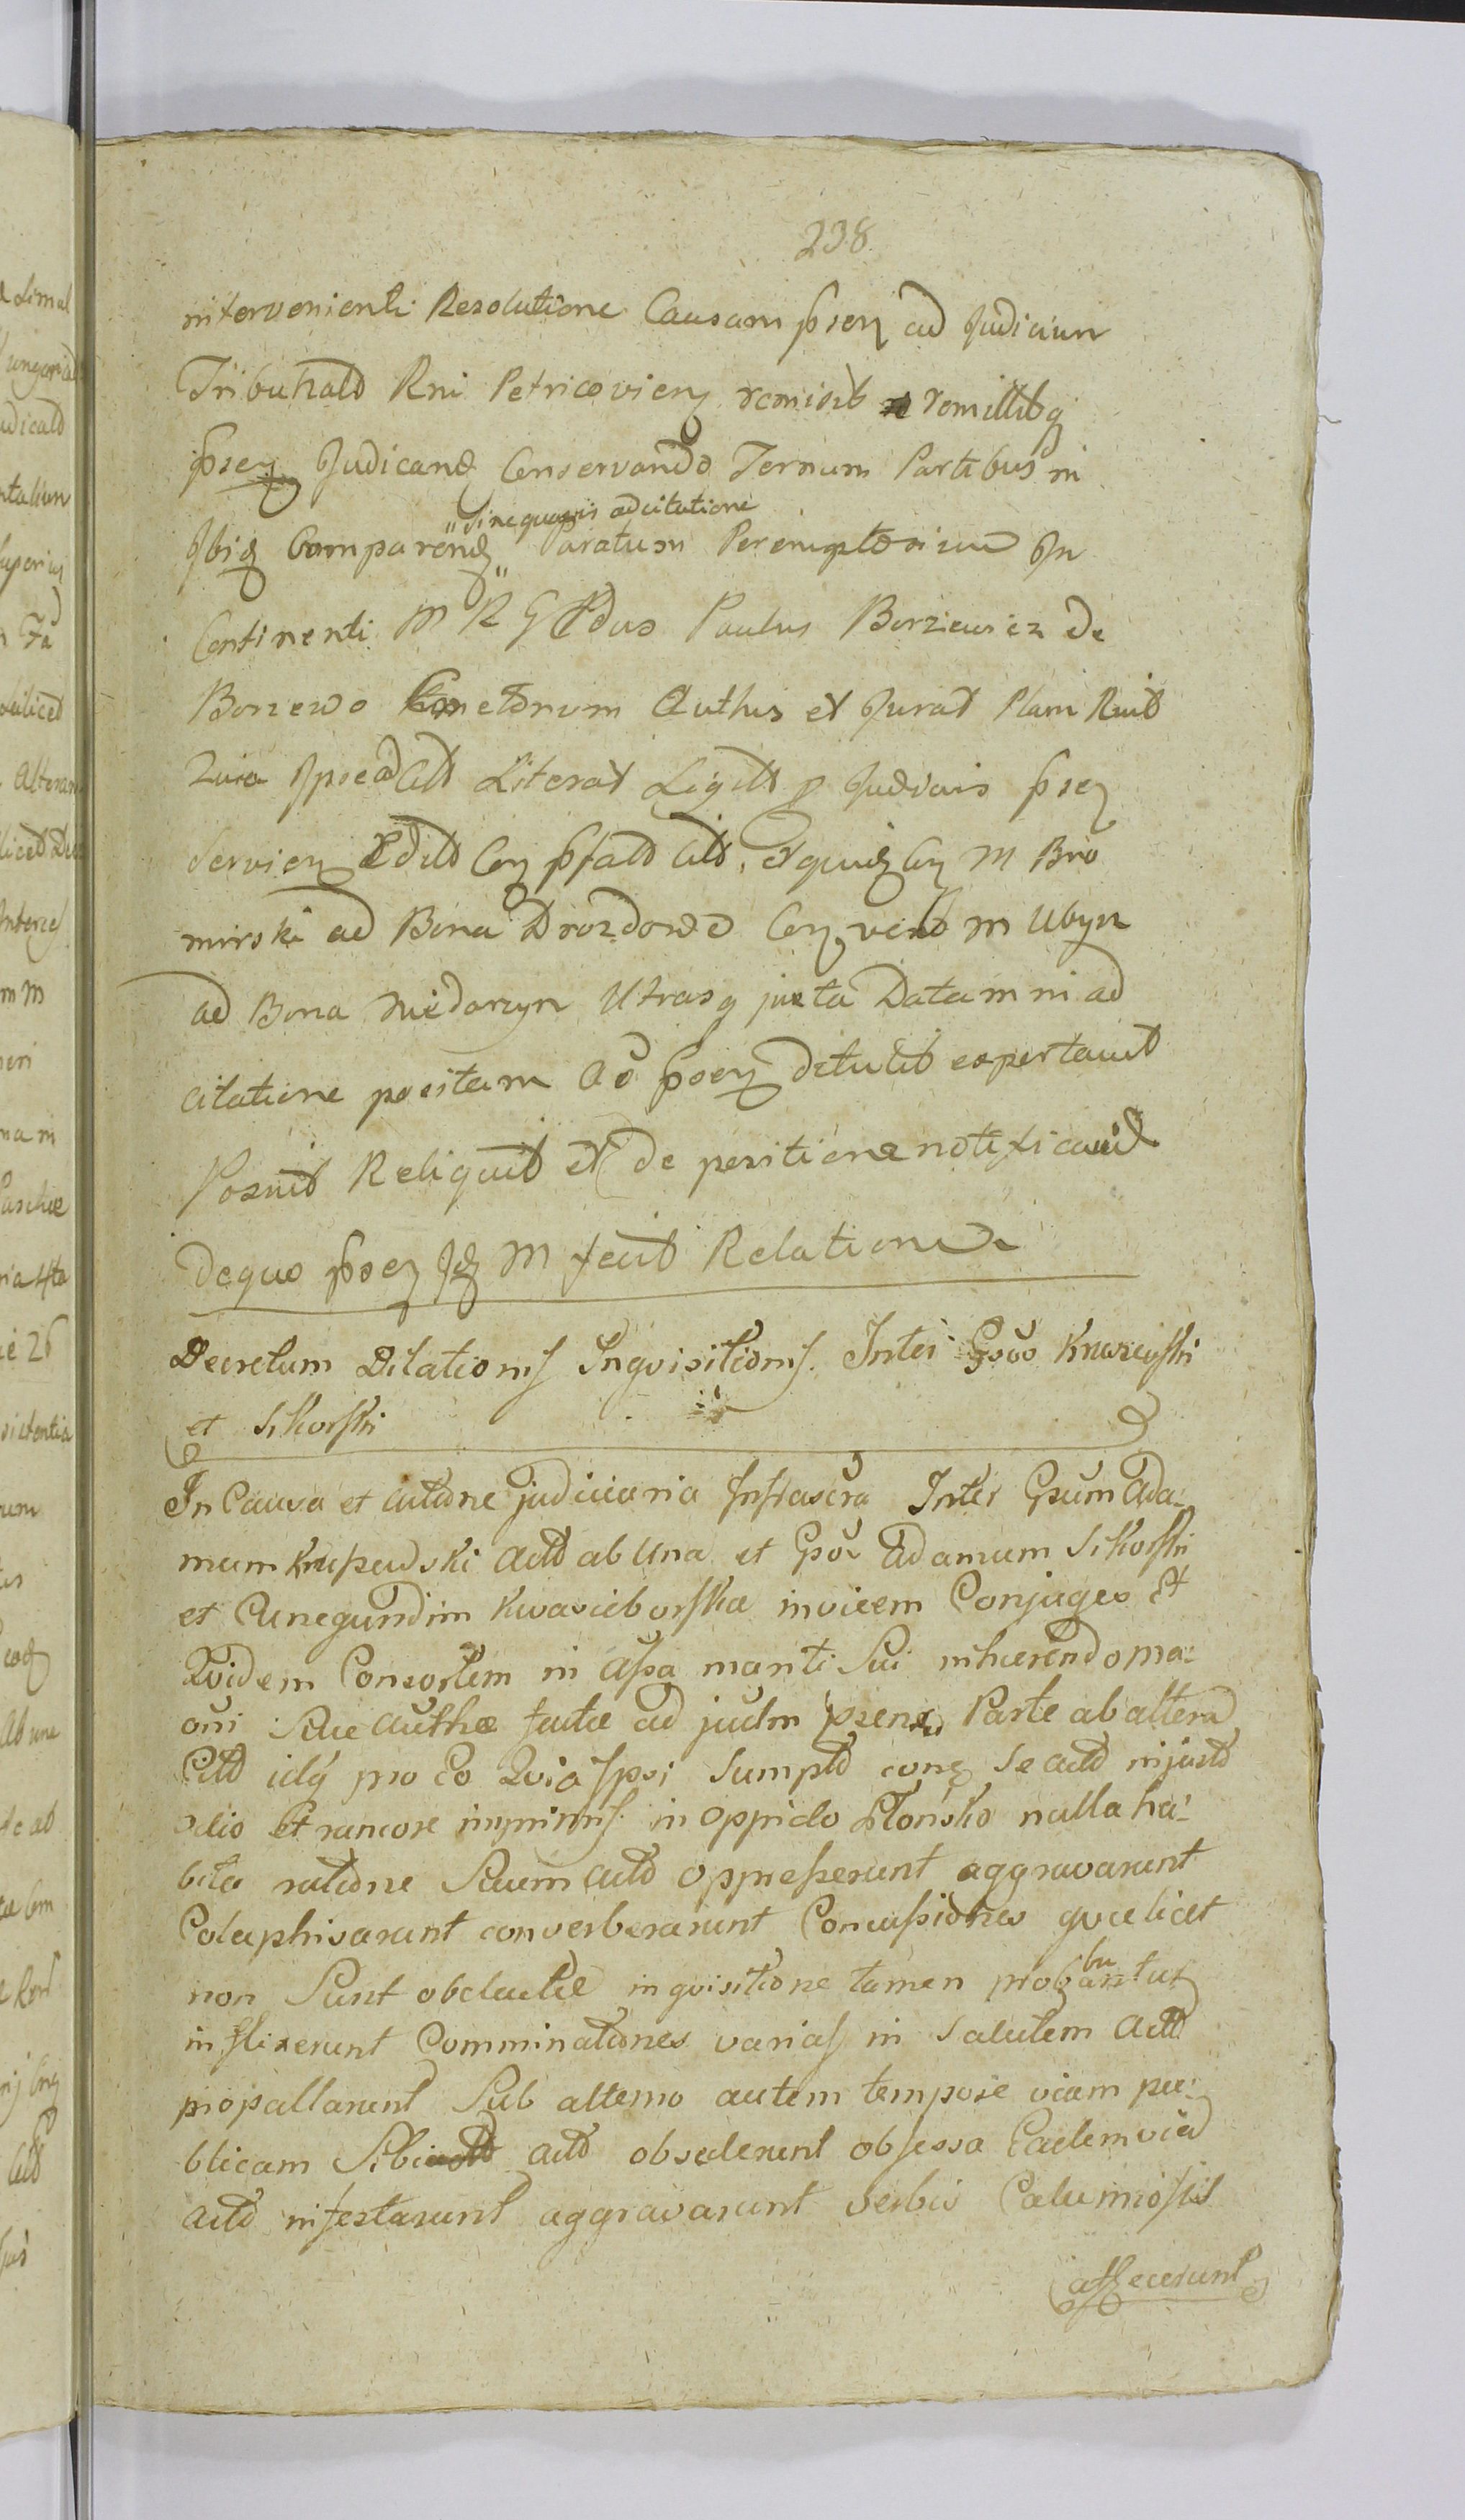 238
intervenienti Resolutione Causam psen ad Judicium
Tribunald Rni Petricovien remisit remittitq
psen Judicand Conservando Ternum Partibus in
"Sinequavis adcitatione
Ibiq Comparend" Paratum Peremptorium In
Continenti M R G Pdus Paulus Borziewicz de
Borzewo Actorum Authus et Jurat Plam Ruit
Quia Ipse ad Citt Literat Legitt p Judiciis psen
Servien Edit Con psatt Citt, et quid Con M Bro
mirski ad Bona Drozdowo Con, vero M Ubysz
ad Bona Niedarzyn Utrasq juxta Datam in ad
citatione positam Ao psen detulit exportavit
Posuit Reliquit et de positione notificavit
De quo psen Id M fecit Relatione
Decretum Dilationis Inqvisitionis. Inter Gsos
et Sikorski
In Causa et actione judiciaria Infrascra Inter Gsum Ada:
mum Krupewski Actt ab Una et Gsos Adamum Sikorski
et Cunegundim Kwasieborska invicem Conjuges Et
Qvidem Consortem in assa mariti Sui inhaerendo ma:
oni Suae Authae factae ad judm psens Parte ab altera
Citt idq pro Eo Qvia Ipsi Sumptt conq se actt injustt
odio Et rancore imprimis in oppido Płońsko nulla ha:
bita ratione Suum Actt oppresserunt aggravarunt
Colaphisarunt converberarunt Concussiones qvae licet
non Sunt obductae inqvisitione tamen probabuntur
inflixerunt Comminationes varias in Salutem Actt
propallarunt Sub alterno autem tempore viam pu:
blicam Sibi Actt obsederunt obsessa Eadem via
Actt infestarunt aggravarunt verbis Calumniosis
affecerunt